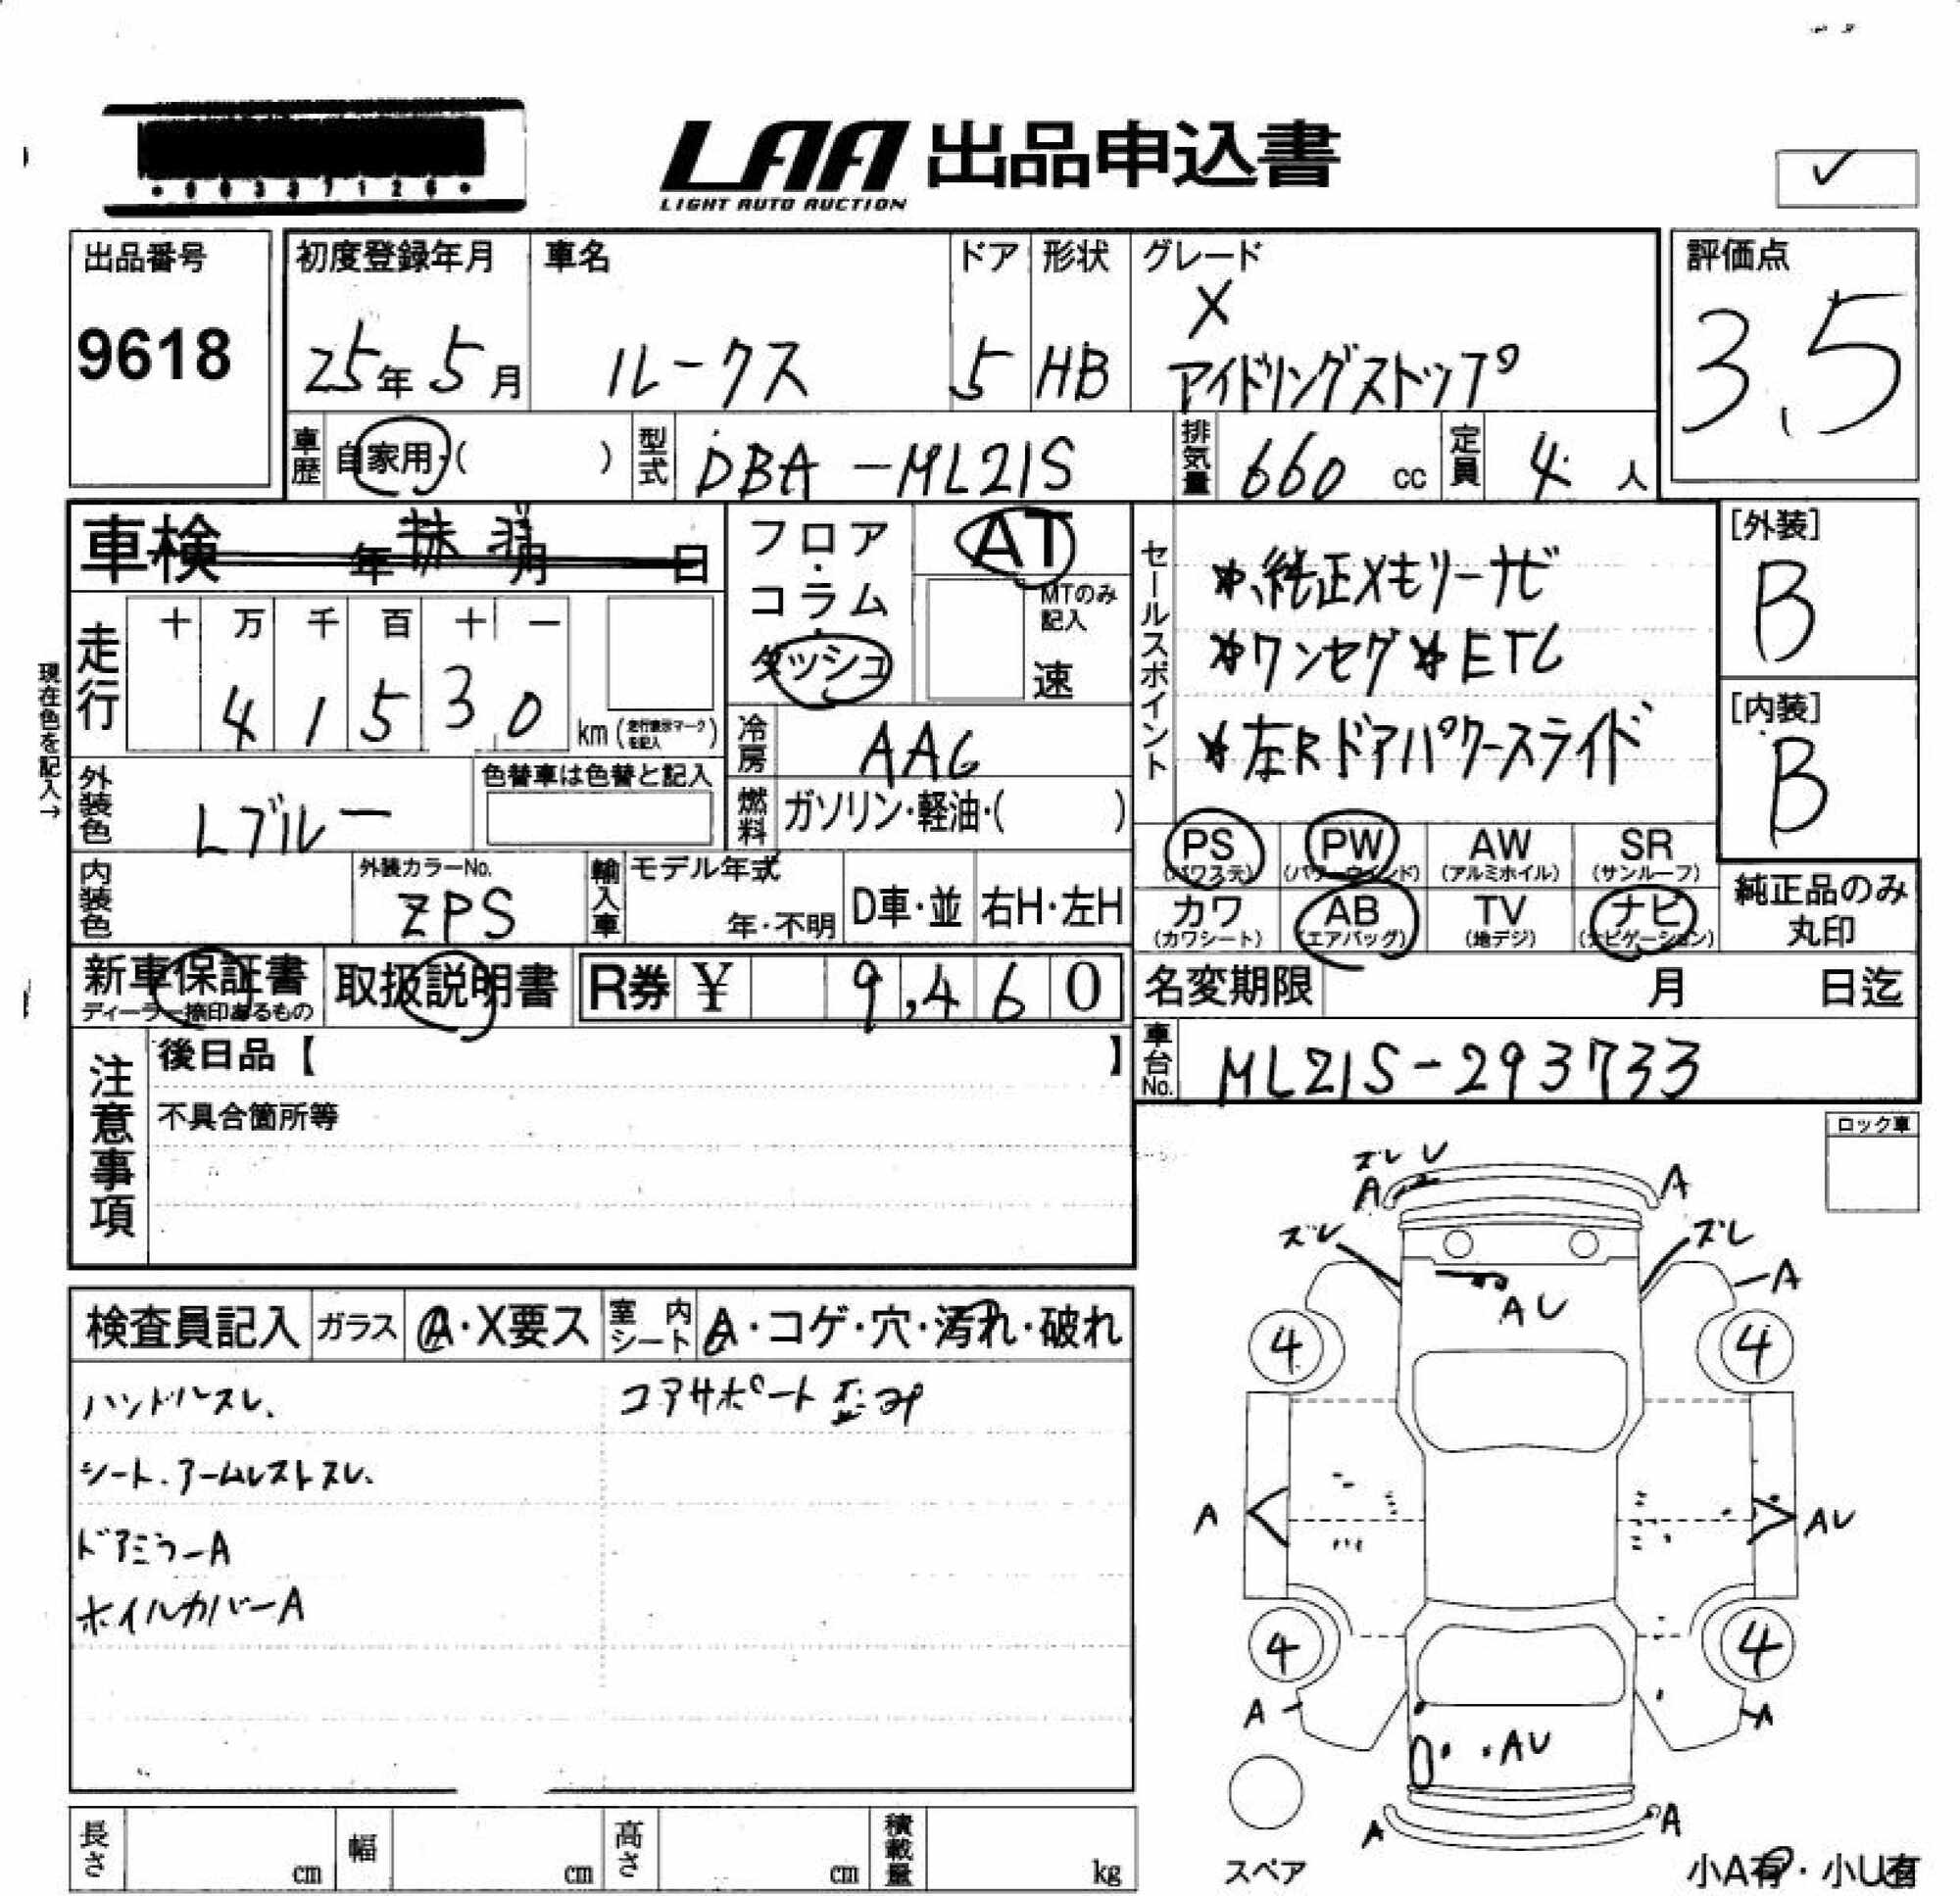 LAA 出品申込書
LIGHT AUTO AUCTION
✓
出品番号
9618
初度登録年月
25年5月
車名
ルークス
ドア
5
形状
HB
グレード
X
アイドリングストップ
評価点
3.5
車歴
自家用・( )
型式
DBA-ML21S
排気量
660 cc
定員
4 人
車検 年 抹消 月 日
走行
十 万 千 百 十 一
4 1 5 3 0 km (走行表示マークを記入)
現在色を記入→
外装色
Lブルー
色替車は色替と記入
内装色
外装カラーNo.
ZPS
フロア・コラム・ダッシュ
AT
MTのみ記入
速
冷房
AAC
燃料
ガソリン・軽油・( )
輸入車
モデル年式
年・不明
D車・並
右H・左H
セールスポイント
*純正メモリーナビ
*ワンセグ*ETC
*左Rドアパワースライド
[外装]
B
[内装]
B
PS (パワステ)
PW (パワーウィンド)
AW (アルミホイル)
SR (サンルーフ)
カワ (カワシート)
AB (エアバッグ)
TV (地デジ)
ナビ (ナビゲーション)
純正品のみ
丸印
新車保証書
ディーラー捺印あるもの
取扱説明書
R券 ¥ 9,460
名変期限 月 日迄
車台No.
ML21S-293733
注意事項
後日品【 】
不具合箇所等
ロック車
検査員記入
ガラス
A・X要ス
室内シート
A・コゲ・穴・汚れ・破れ
ハンドルスレ、
コアサポート歪み
シート、アームレストスレ、
ドアミラーA
ホイルカバーA
ズレ U
A
A
ズレ
ズレ
A
AU
4
4
A
AU
4
4
A
A
AU
A
A
スペア
小A有・小U有
長さ cm
幅 cm
高さ cm
積載量 kg